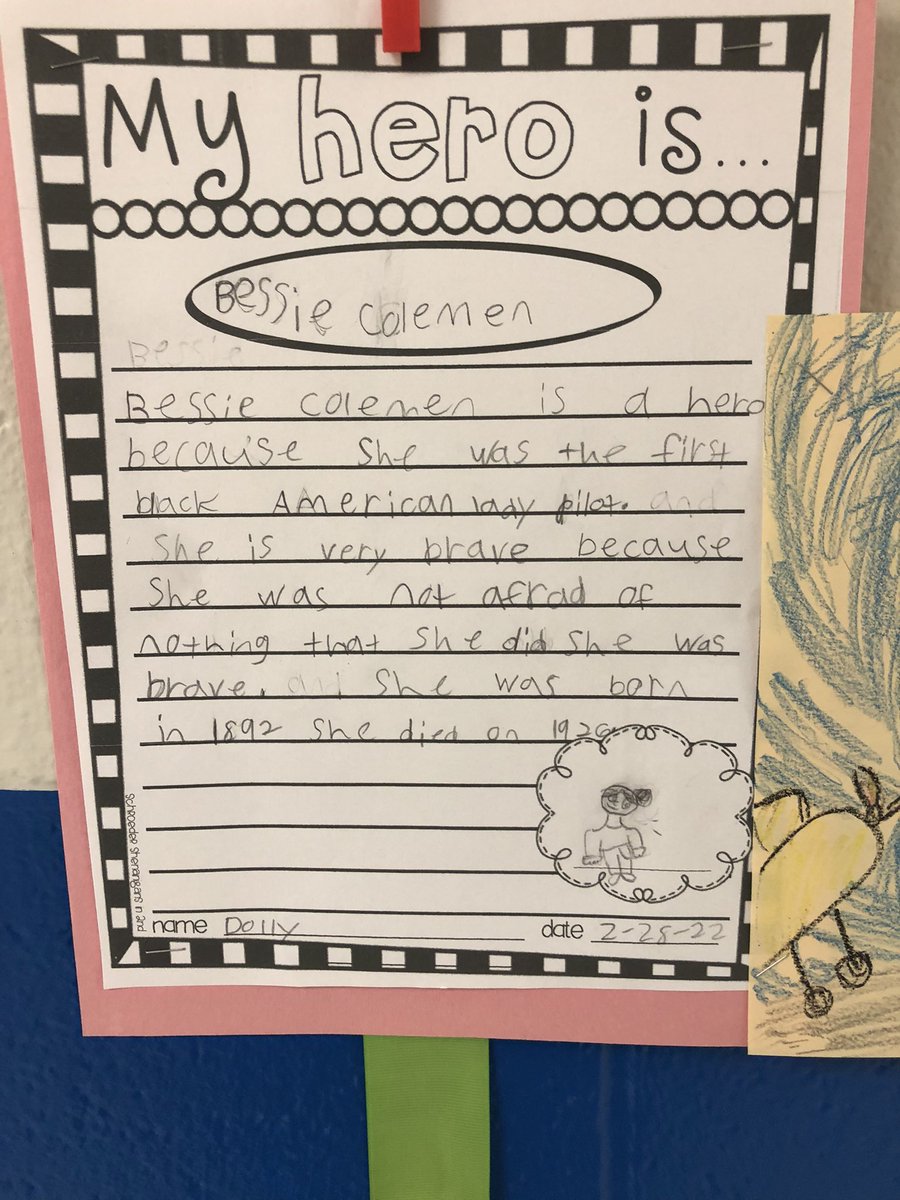 My hero is...
Bessie Colemen
Bessie
Bessie colemen is a hero
because She was the first
black American lady pilot. and
She is very brave because
She was not afrad of
nothing that She did She was
brave. and She was born
in 1892 She died on
schroeder shenanigans in 2nd
name Dolly date 2-28-22